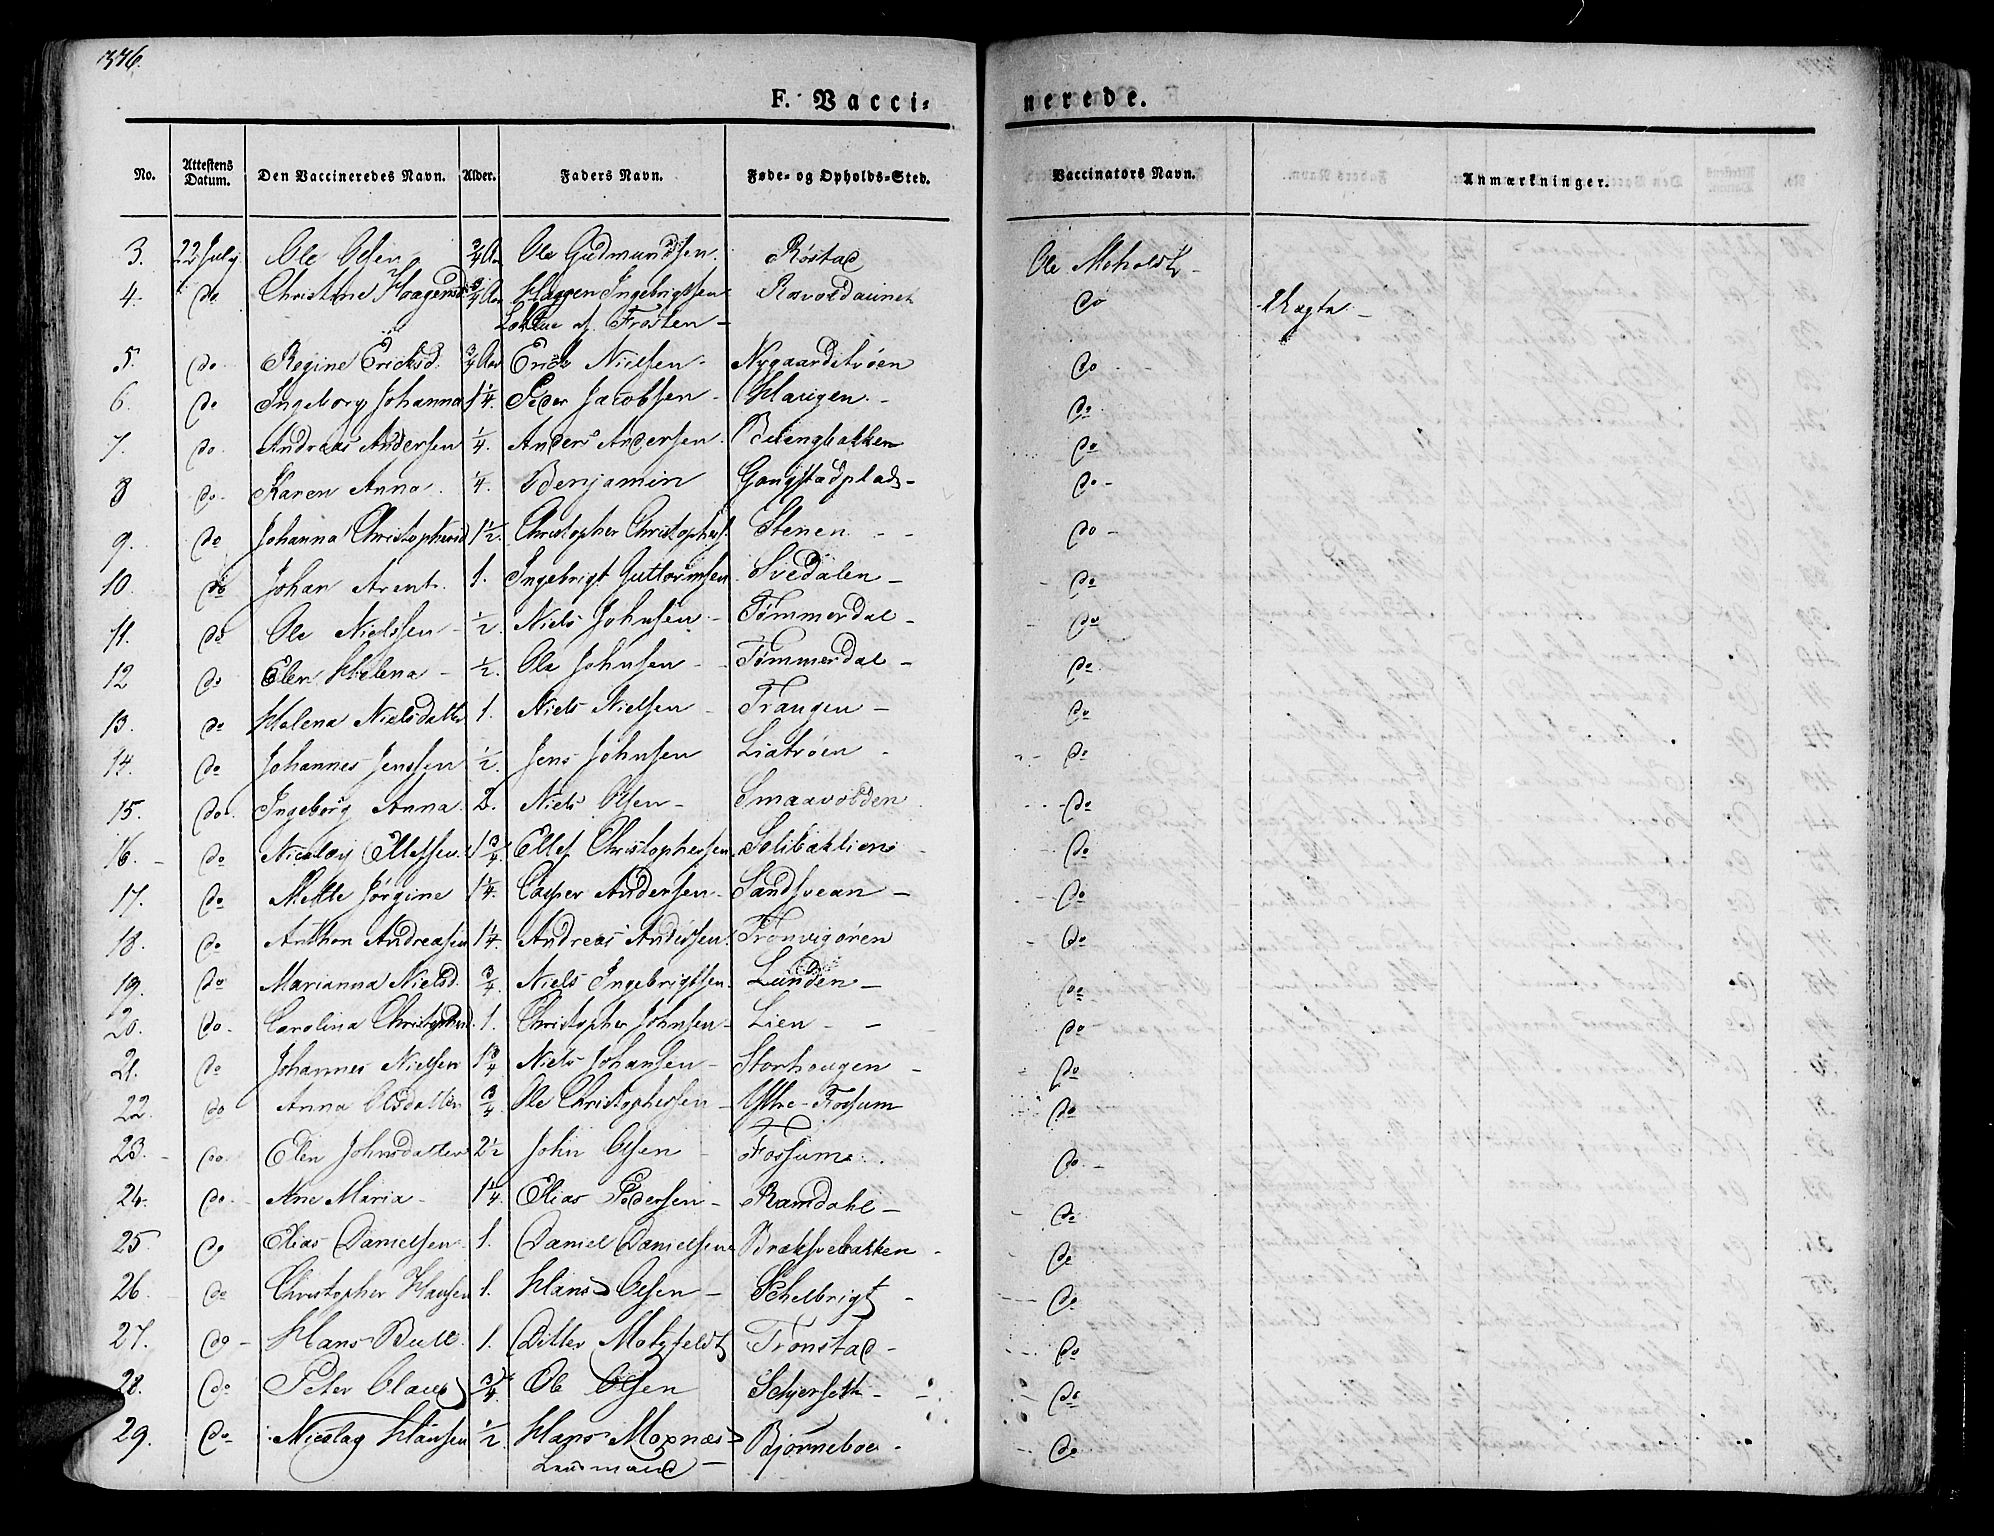 376.
F. Vacci=
nerede.
No. Attestens Datum. Den Vaccineredes Navn. Alder. Faders Navn. Føde- og Opholds-Sted. Vaccinators Navn. Anmærkninger.
3. 22 July Ole Olsen 3/4 Aar Ole Gudmundsen. Røstad Ole Moholdt -
4. do Christine Haagensd 3/4 Aar Haagen Ingebrigtsen Rosvoldaunet do Uægte -
af Frosten -
5. do. Regine Ericksd. 3/4 Aar Erick Nielsen. Nygaardstrøen do
6. do Ingeborg Johanna 1 1/4. Peder Jacobsen - Haugen. - do.
7. do. Andreas Andersen 1/4. Anders Andersen. do
8 do. Karen Anna. 1/4. Benjamin Gangstadplads - do -
9. do Johanna Christophersd 1 1/2. Christopher Christophers. Stenen - - do -
10. do Johan Arent. 1. Ingebrigt Guttormsen Svedalen - - do
11. do Ole Nielssen - 1/2. Niels Johnsen - Tømmerdal - - do
12 do Elen Helena - 1/2. Ole Johnsen - Tømmerdal - do.
13. do Helena Nielsdatter 1. Niels Nielsen - Trangen - do
14. do Johannes Jenssen 1/2. Jens Johnsen Liatrøen - do
15. do. Ingeborg Anna. 2. Niels Olsen - Smaavolden do
16. - do Nicolay Ellefsen. 1 3/4. Ellef Christophersen. - do
17. do Mette Jørgine 1 1/4. Casper Andersen - Sandsvean - do
18. do Anthon Andreasen 1 1/4. Andreas Andersen. Tronvigøren do
19. do Marianna Nielsd. 3/4. Niels Ingebrigtsen. Lunden - do
20. do. Carolina Christophersd. 1. Christopher Johnsen - Lien - - do -
21. do Johannes Nielsen 1 3/4 Niels Johansen - Storhougen - do
22. do Anna Olsdatter 3/4 Ole Christophersen - Ytre-Fossum do
23. - do. Elen Johnsdatter 2 1/2 John Olsen - Fossume. do. -
24. do. Ane Maria - 1 1/4 Elias Pedersen - Ramdahl - do
25. do Elias Danielsen. 1. Daniel Danielsen - do
26. do Christopher Hansen 1. Hans Olsen - Schelbrigt - do
27. do - Hans Bull. 1. Ditlev Motzfeldt Tronstad - do
28. do Peter Claus 3/4. Ole Olsen Schjerseth - do
29. do Nicolay Hansen 1/2 Hans Moxnæs Bjørneboe - do
Lensmand -